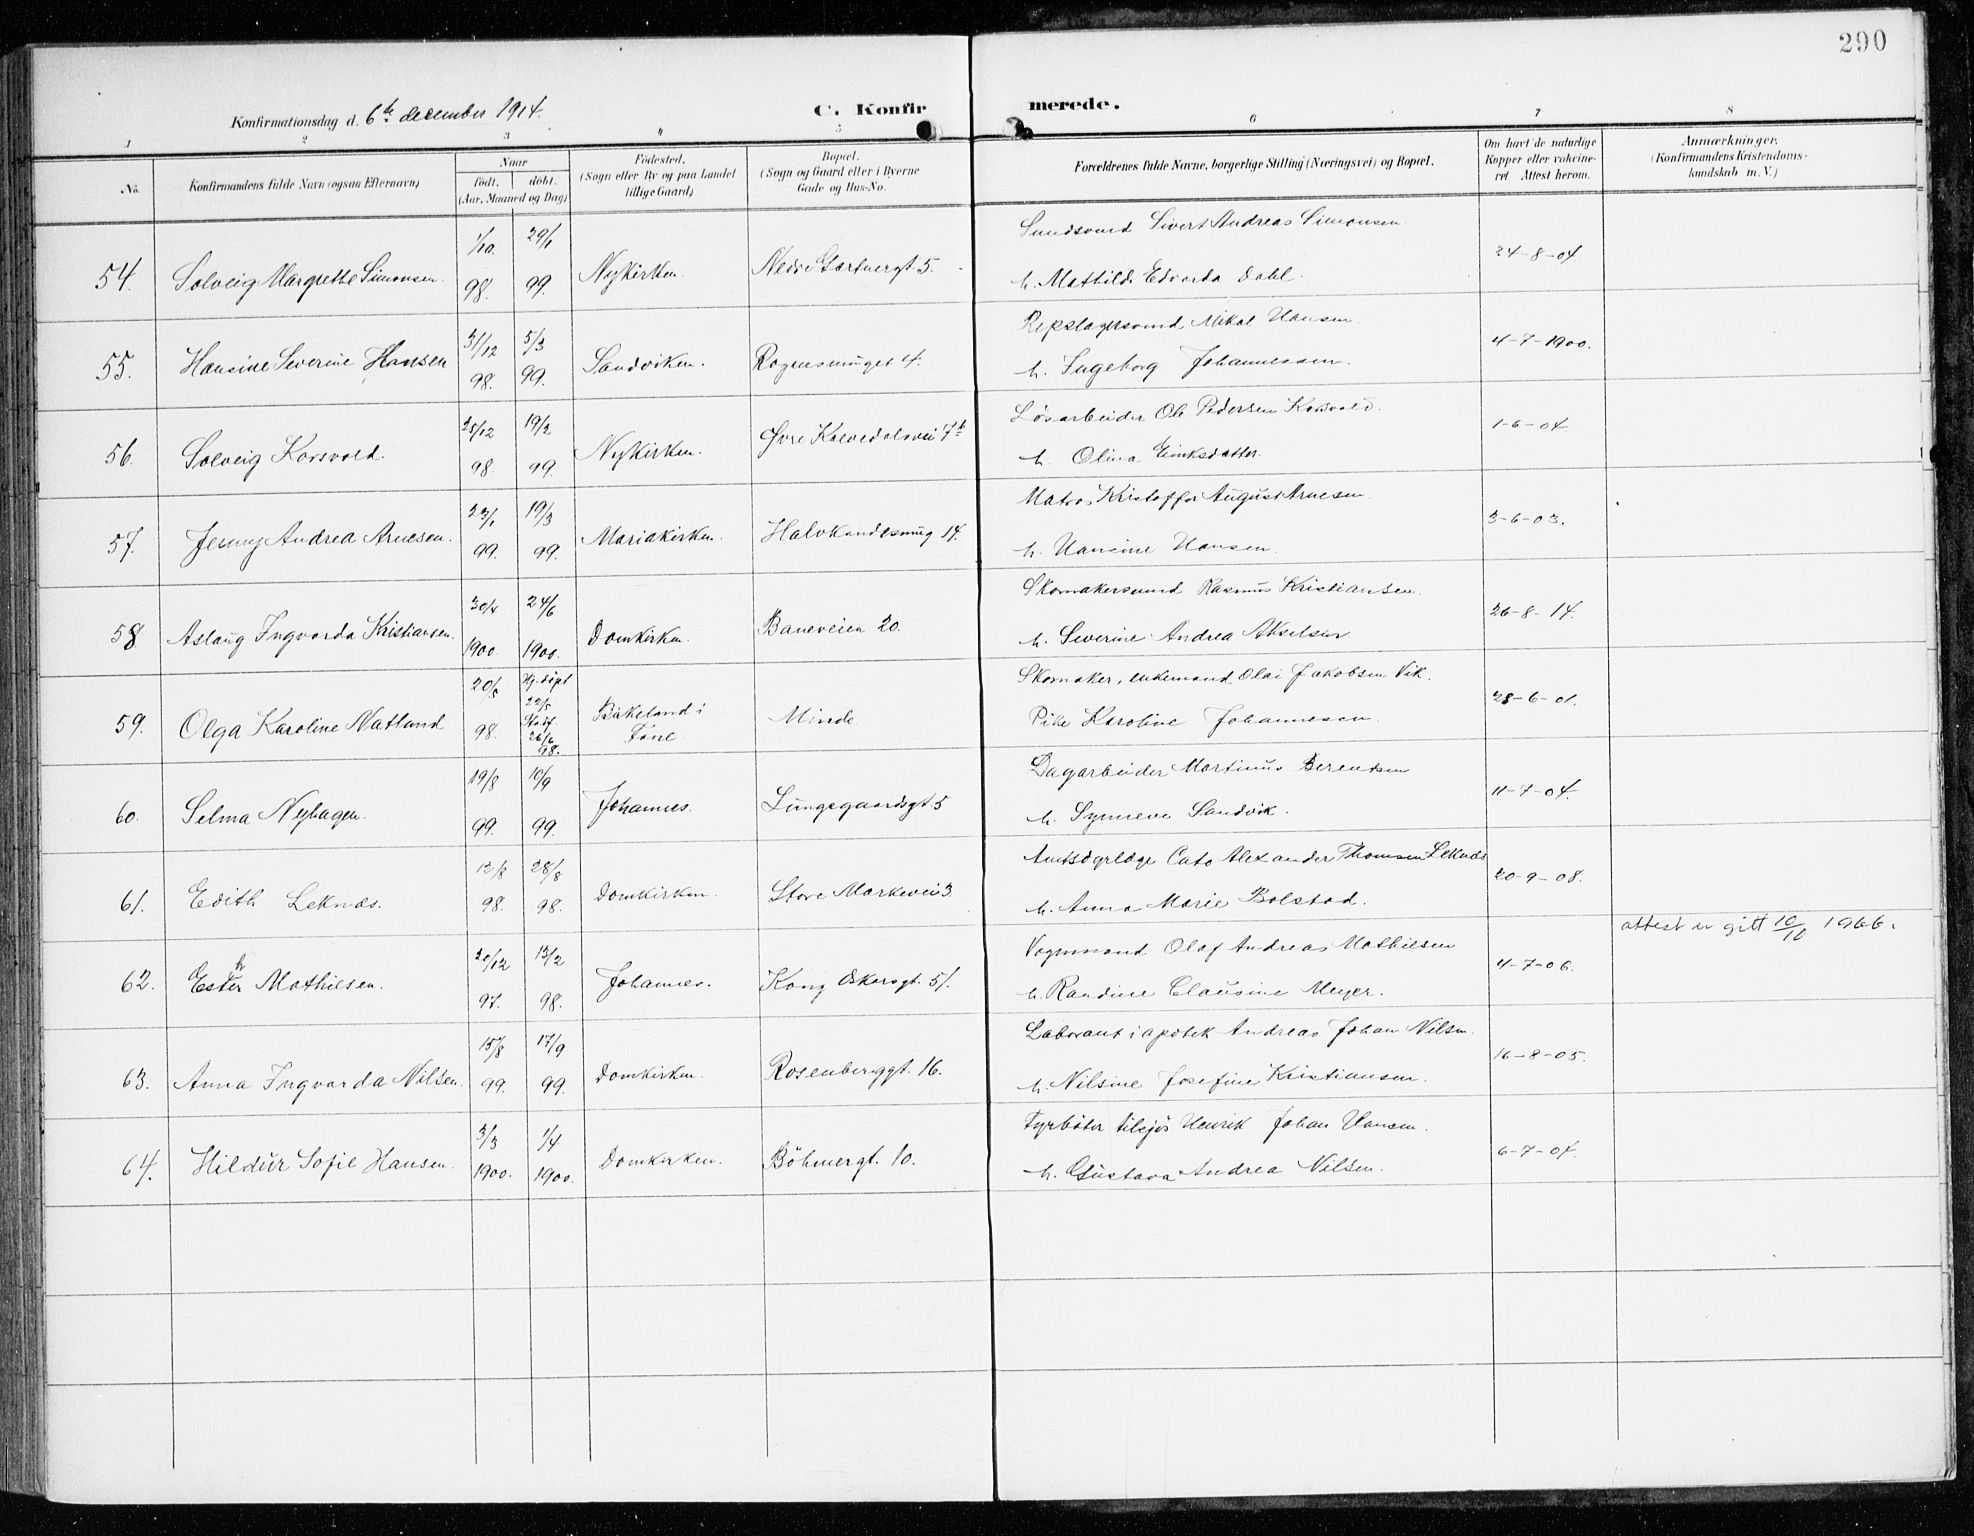 290
Konfirmationsdag d. 6te december 1914.
C. Konfirmerede.
1 2 3 4 5 6 7 8
No.
Konfirmandens fulde Navn (ogsaa Efternavn)
Naar
födt. döbt.
(Aar, Maaned og Dag)
Födested.
(Sogn eller By og paa Landet
tillige Gaard)
Bopæl.
(Sogn og Gaard eller i Byerne
Gade og Hus-No.
Forældrenes fulde Navne, borgerlige Stilling (Næringsvei) og Bopæl.
Om havt de naturlige
Kopper eller vakcine-
ret Attest herom.
Anmærkninger.
(Konfirmandens Kristendoms-
kundskab m. V.)
54. Solveig Margrethe Simonsen. 1/10. 98. 29/1 99. Nykirken. Nedre Gartnergt 5. Sivert Andreas Simonsen. 24-8-04
h. Mathilde Edvarda Dahl.
55. Hansine Severine Hansen 31/12 98. 5/3 99. Sandviken. Rognesmuget 4. Repslagersvend Mikal Hansen. 4-7-1900.
h. Ingeborg Johannessen.
56. Solveig Korsvold. 25/12 98. 19/2 99. Nykirken. Øvre Kalvedalsvei 7b Løsarbeider Ole Pedersen Korsvold. 1-6-04
h. Olina Eiriksdatter.
57. Jenny Andrea Arnesen. 23/1 99. 19/3 99. Mariakirken. Halvkandesmug 14. Matros Kristoffer August Arnesen. 3-6-03.
h. Hansine Hansen.
58. Aslaug Ingvarda Kristiansen. 30/4 1900. 24/6 1900. Domkirken. Baneveien 20. Skomakersvend Rasmus Kristiansen. 26-8-14.
h. Severine Andrea Akselsen
59. Olga Karoline Natland 20/5 98. Hj. döpt 22/5 Stadf. 26/6 98. Bakeland i Fane. Minde. Skomaker, enkemand Olai Jakobsen Vik. 28-6-01.
Pike Karoline Johannesen.
60. Selma Nyhagen. 19/8 99. 10/9 99. Johannes. Lungegaardsgt. 5 Dagarbeider Martinus Berentsen 11-7-04.
h. Synneve Sandvik.
61. Edith Leknæs. 12/8 98. 28/8 98. Domkirken. Store Markevei 3 Amtsdyrlæge Cato Alexander Thomsen Leknæs 20-9-08.
h. Anna Marie Bolstad.
62. Esther Mathiesen. 20/12 97. 13/2 98. Johannes. Kong Oskarsgt. 51. Vognmand Olaf Andreas Mathiesen 4-7-06. attest er gitt 10/10 1966.
h. Randine Clausine Meyer.
63. Anna Ingvarda Nilsen. 15/8 99. 17/9 99. Domkirken. Rosenberggt. 16. Laborant i apotek Andreas Johan Nilsen. 16-8-05.
h. Nilsine Josefine Kristiansen.
64. Hildur Sofie Hansen. 3/3 1900. 1/4 1900. Domkirken. Böhmergt. 10. Fyrböter tilsjös Henrik Johan Hansen. 6-7-04.
h. Gustava Andrea Nilsen.